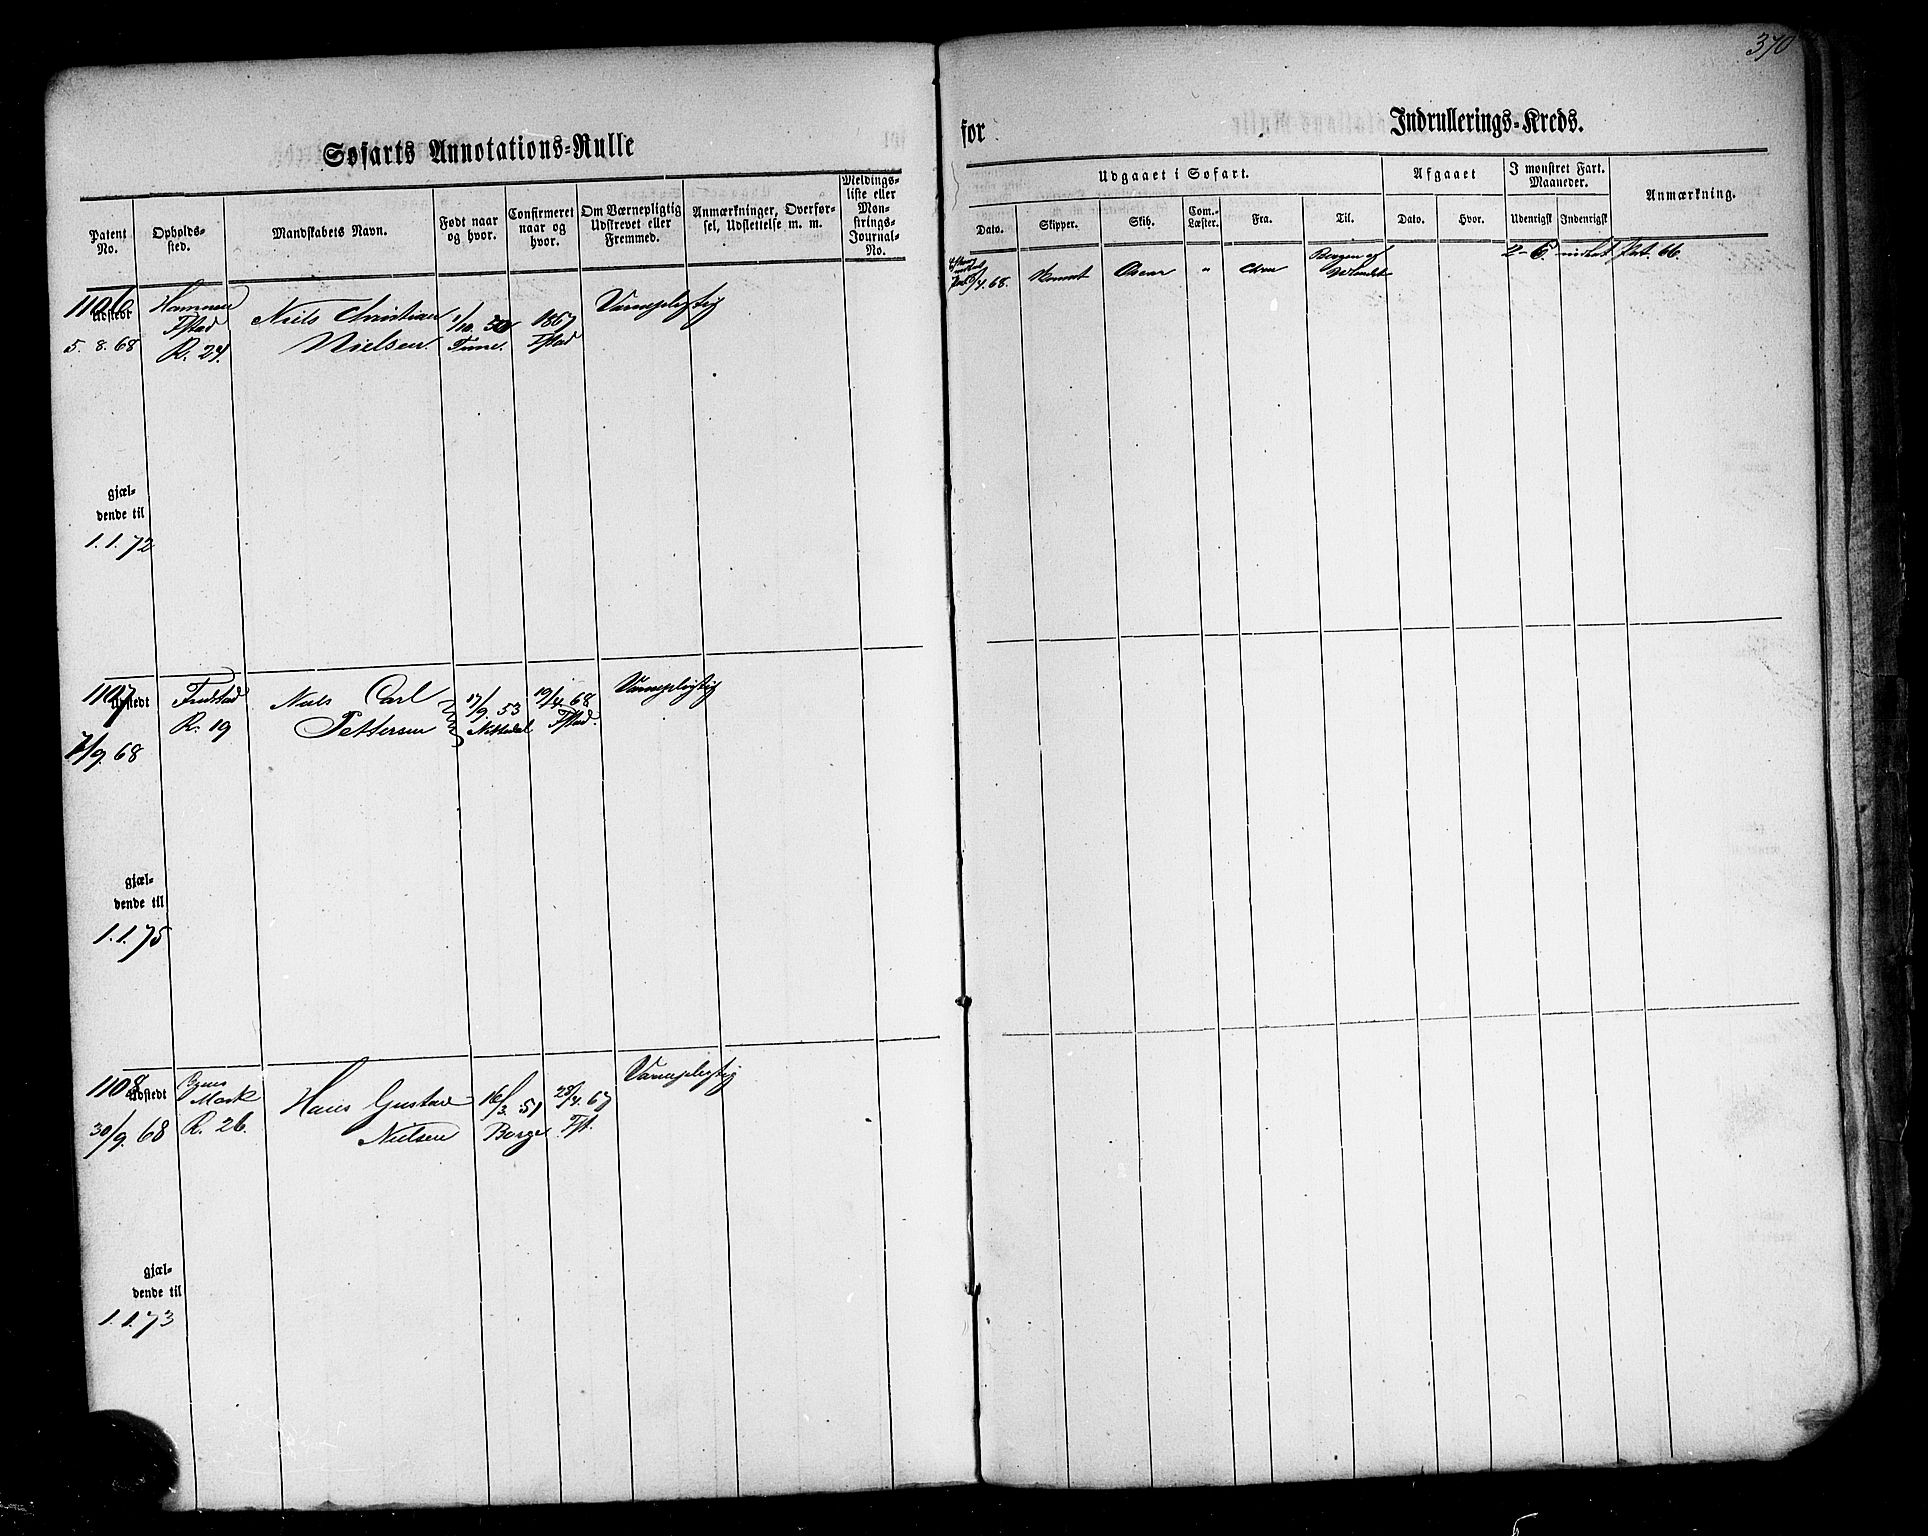 370
Søfarts Annotations-Rulle
for
Indrullerings-Kreds.
Patent No.
Opholds-sted.
Mandskabets Navn.
Født naar og hvor.
Confirmeret naar og hvor.
Om Værnepligtig Udskrevet eller Fremmed.
Anmærkninger, Overførsel, Udslettelse m. m.
Meldings-liste eller Mon-strings-Journal-No.
Udgaaet i Søfart.
Afgaaet
I mønstret Fart. Maaneder.
Anmærkning.
Dato.
Skipper.
Skib.
Com.-Læster.
Fra.
Til.
Dato.
Hvor.
Udenrigsk
Indenrigsk
1106
Udstedt
5. 8. 68
Fstad
R. 24.
Niels Christian
Nielsen.
1/10. 50
Tune.
1867
Fstad
Værnepligtig
gjæl-
dende til
1.1.72
4. 68.
Oscar
"
Chra
Bergen og
2-6
Pat. 66.
1107
Udstedt
7/9. 68
Fredstad
R. 19
Niels Carl
Pettersen
17/9. 53
Nittedal
19/4. 68
Fstad.
Værnepligtig
gjæl-
dende til
1.1.75
1108
Udstedt
30/9. 68
Mark
R. 26.
Hans Gustav
Nielsen
16/3. 51
Borge
28/4. 67
Fst.
Værnepligtig
gjæl-
dende til
1.1.73